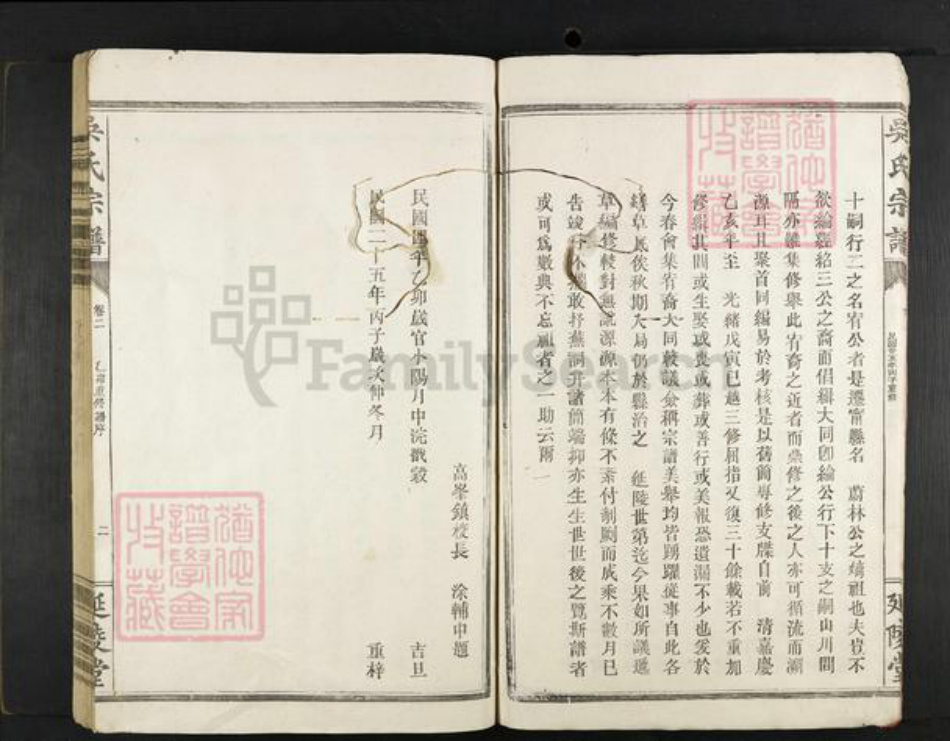 吳氏宗譜
民國廿五年丙子重修
延陵堂
十嗣行二之名宥公者是遷甯縣名 蔚林公之嫡祖也夫豈不
欲綸縣給三公之裔而倡緝大同卽綸公行下十支之嗣山川間
隔亦難集修舉此宥裔之近者而先修之後之人亦可循流而溯
源耳且聚首同編易於考核是以舊簡專修支牒自前 清嘉慶
乙亥年至 光緒戊寅已越三修屈指又復三十餘載若不重加
修緝其間或生娶或喪或葬或善行或美報恐遺漏不少也爰於
今春會集宥裔大同較議僉稱宗譜美舉均皆踴躍從事自此各
繕草底俟秋期大局仍於縣治之 延陵世第迄今果如所議遞
草編修較對無訛源源本本有條不紊付剞劂而成乘不數月已
告竣行不 敢抒蕪詞弁諸簡端抑亦生生世世後之覽斯譜者
或可爲數典不忘祖者之一助云爾
高峯鎮校長 涂輔中題
民國 年乙卯歲官小陽月中浣戬榖 吉旦
民國二十五年丙子歲次仲冬月 重梓
吳氏宗譜
卷二
乙卯重修譜序
二
延陵堂
猶他家譜學會收藏
猶他家譜學會收藏
FamilySearch